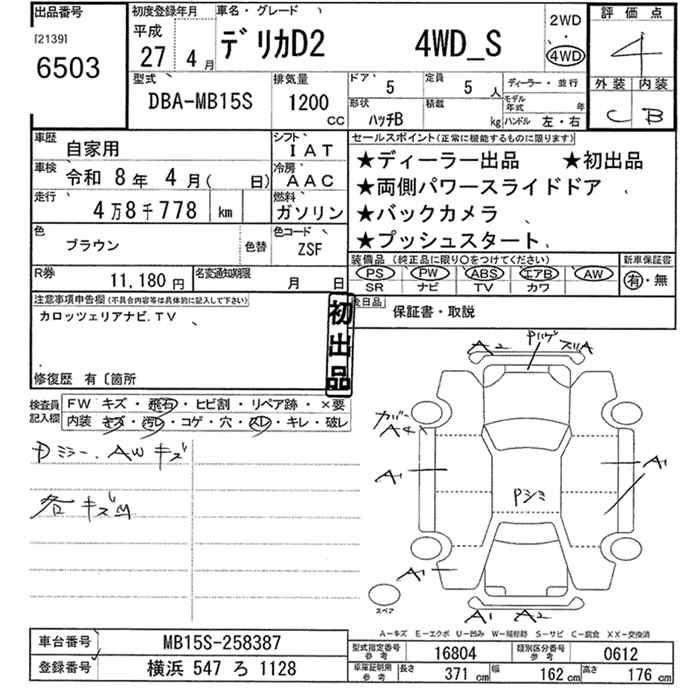 出品番号
[2139]
6503
初度登録年月
平成
27 4 月
車名・グレード
デリカD2 4WD_S
2WD
4WD
評価点
4
外装 内装
C B
型式
DBA-MB15S
排気量
1200
CC
ドア
5
定員
5 人
ディーラー・並行
形状
ハッチB
積載
kg
モデル年式 年
ハンドル 左・右
車歴
自家用
シフト
IAT
車検
令和 8 年 4 月( 日)
冷房
AAC
走行
4万8千778 km
燃料
ガソリン
色
ブラウン
色替
色コード
ZSF
R券
11,180 円
名変通知期限
月 日
セールスポイント(正常に機能するものに限ります)
★ディーラー出品 ★初出品
★両側パワースライドドア
★バックカメラ
★プッシュスタート
装備品 (純正品に限り○をつけてください)
PS PW ABS エアB AW
SR ナビ TV カワ
新車保証書
有・無
後日品
保証書・取説
注意事項申告欄(不具合内容等は具体的に記入して下さい)
カロッツェリアナビ.TV
初出品
修復歴 有〔箇所
検査員記入欄
FW キズ・飛石・ヒビ割・リペア跡・×要
内装 キズ・汚レ・コゲ・穴・スレ・キレ・破レ
Dミラー、AWキズ
各キズ凹
A2
Pハゲ
スリA
カバー
A4
A1
A1
Pシミ
A1
A1 A2
スペア
A-キズ E-エクボ U-凹み W-補修跡 S-サビ C-腐食 XX-交換済
車台番号
MB15S-258387
登録番号
横浜 547 ろ 1128
型式指定番号
参考
16804
類別区分番号
参考
0612
車庫証明用
参考
長さ 371 cm 幅 162 cm 高さ 176 cm